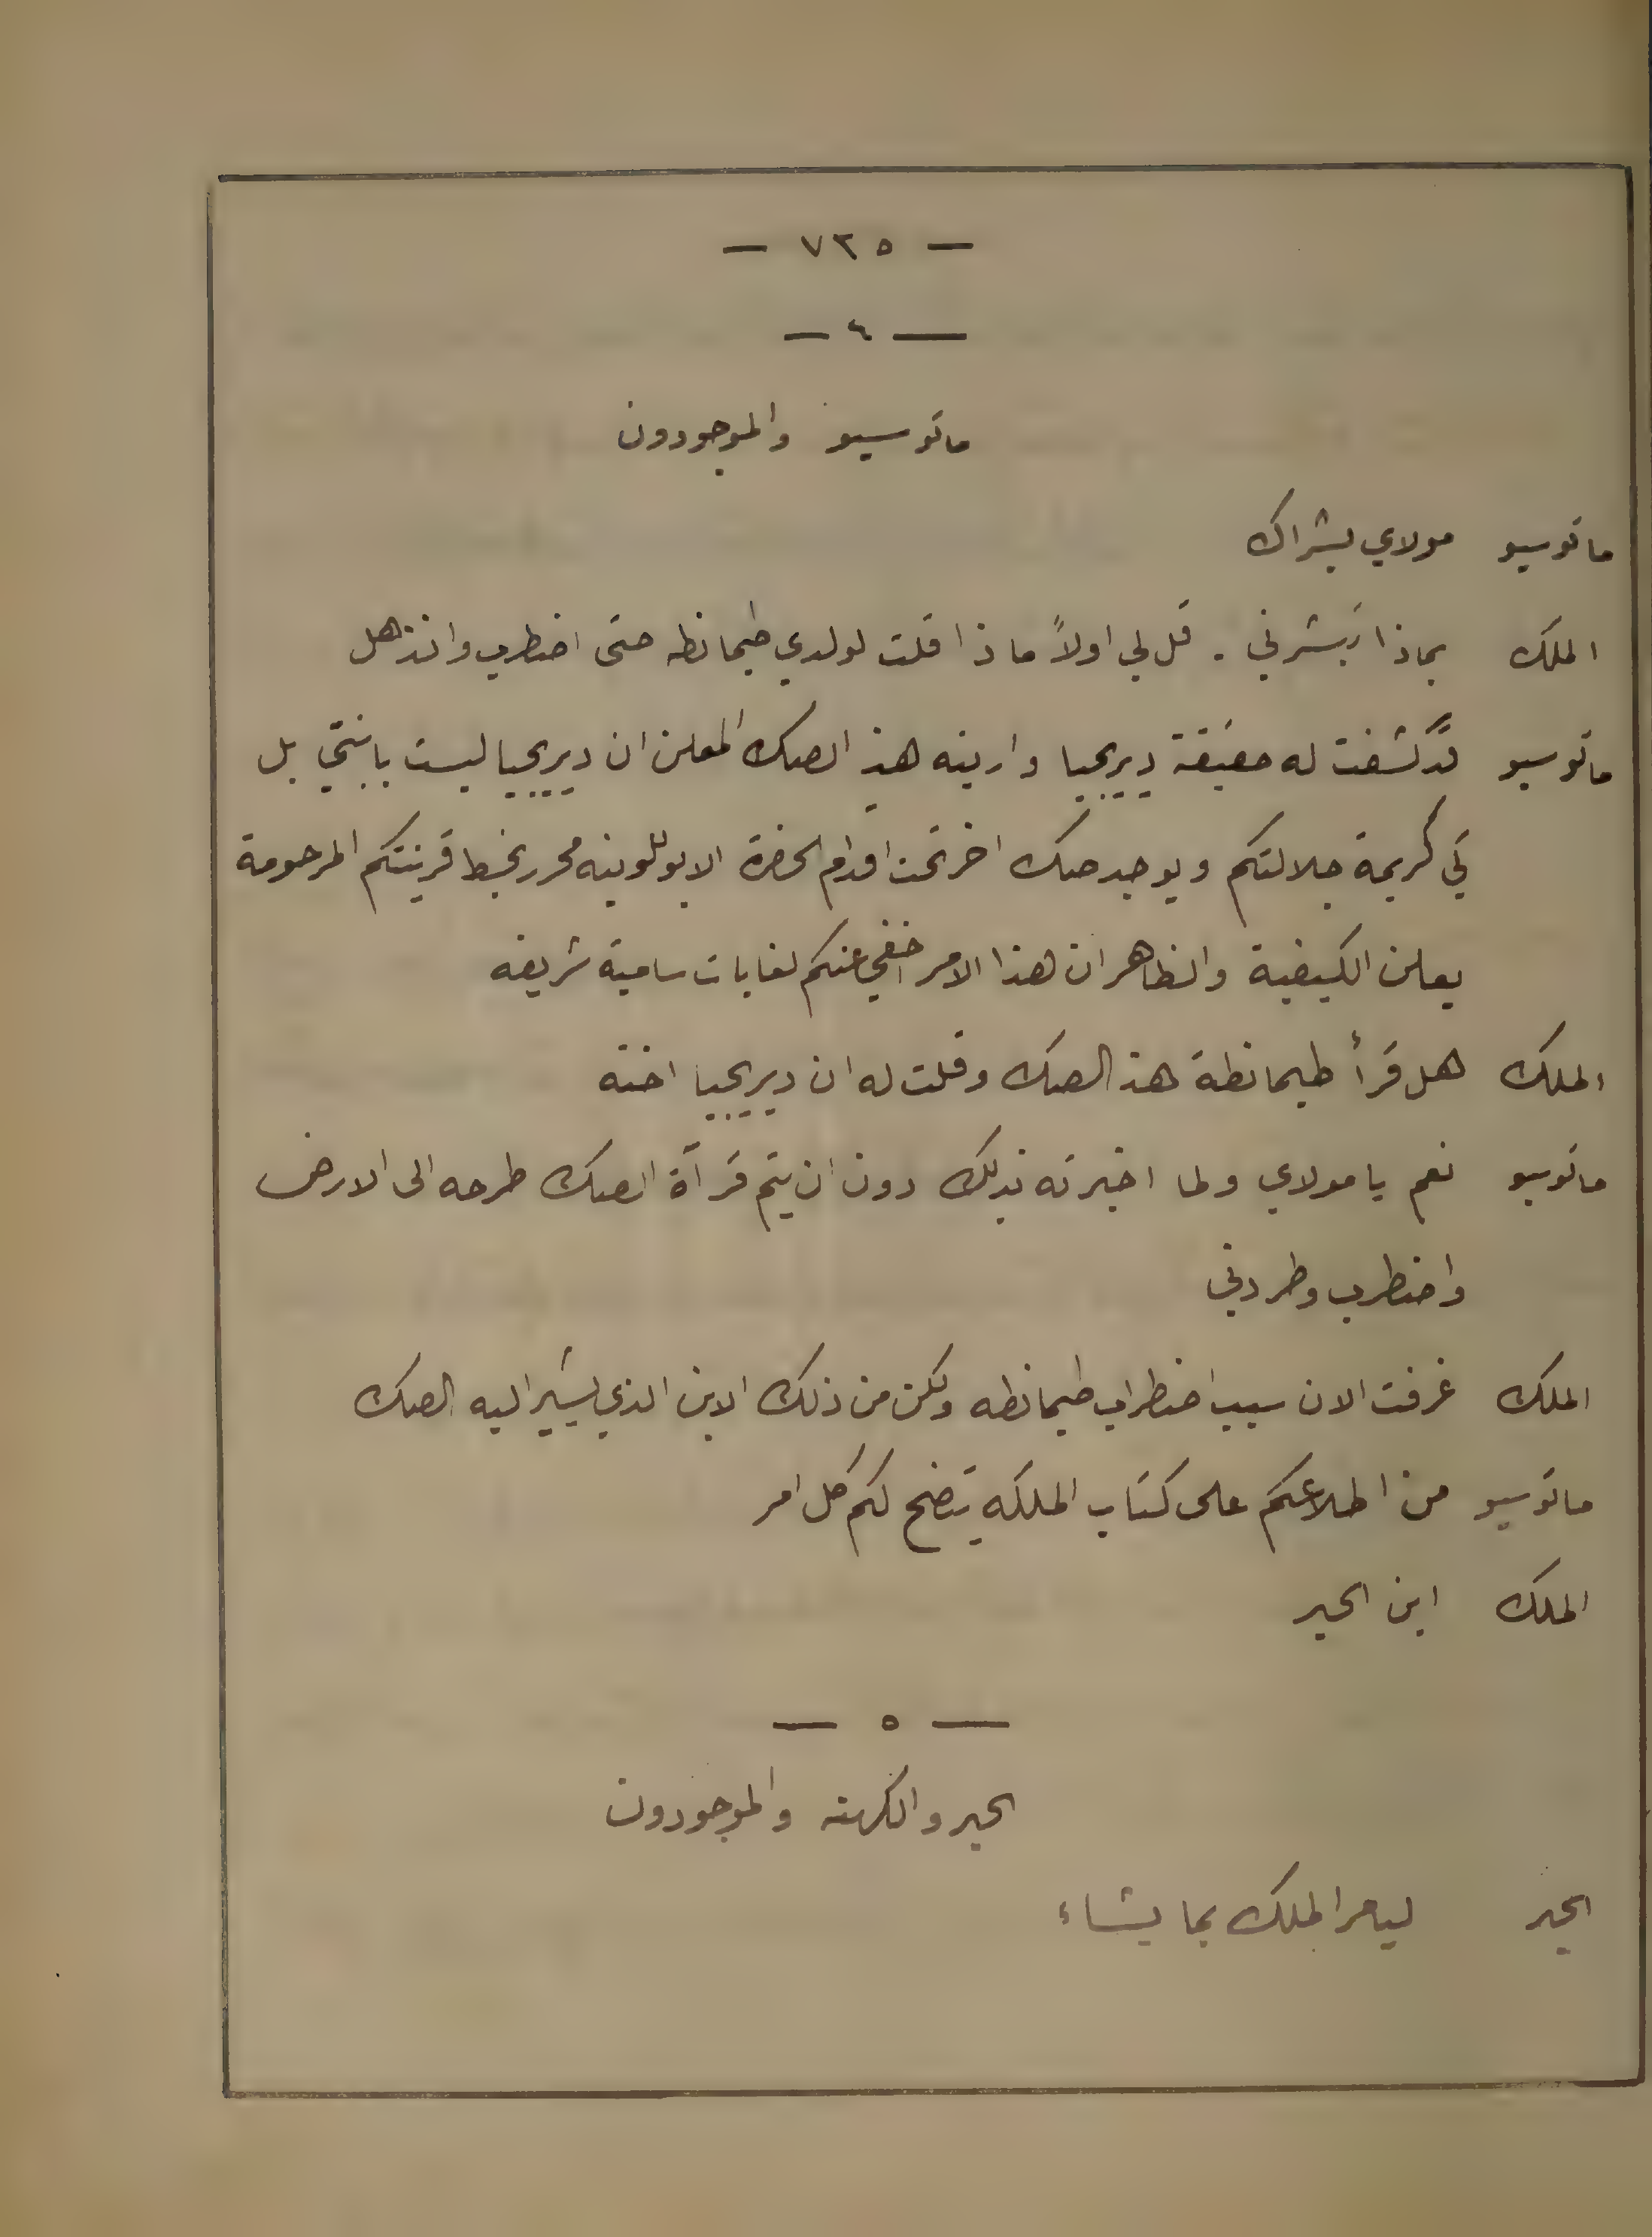 — ٧٢٥ —
— ٤ —
ماتوسيو والموجودون
ماتوسيو مولاي بشراك
الملك بماذا تبشرني . قل لي اولاً ماذا قلت لولدي طيمانطه حتى اضطرب وانذهل
ماتوسيو قد كشفت له حقيقة ديريجيا واريته هذ الصك المعلن ان ديريجيا ليست بابنتي بل
كريمة جلالتكم ويوجد صك اخر تحت اقدام الحضرة الابوللوينه محرر بخط قرينتكم المرحومة
يعلن الكيفية والظاهر ان هذا الامر اخفي عنكم لغايات سامية شريفه
الملك هل قرأ طيمانطة هذ الصك وقلت له ان ديريجيا اخته
ماتوسيو نعم يا مولاي ولما اخبرته بذلك دون ان يتم قرآة الصك طرحه الى الارض
واضطرب وطردني
الملك عرفت الان سبب اضطراب طيمانطه ولكن من ذلك الابن الذي يشير اليه الصك
ماتوسيو من اطلاعكم على كتاب الملكه يتضح لكم كل امر
الملك اين الحبر
— ٥ —
الحبر والكهنه والموجودون
الحبر ليامر الملك بما يشاء